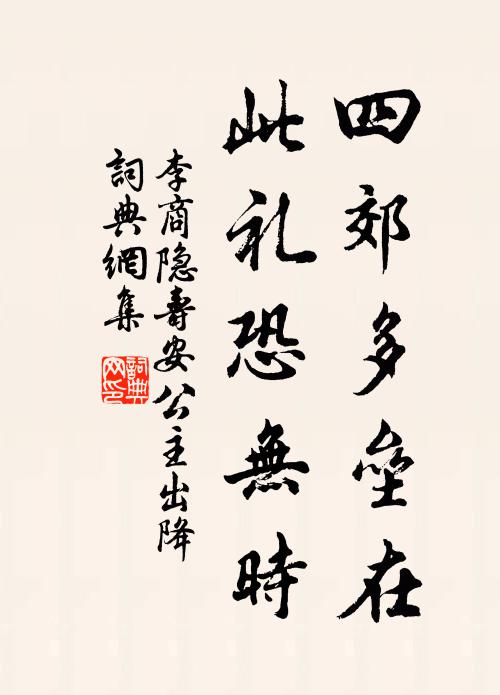 四郊多壘在
此礼恐無時
李商隐壽安公主出降
詞典網集
詞典网印